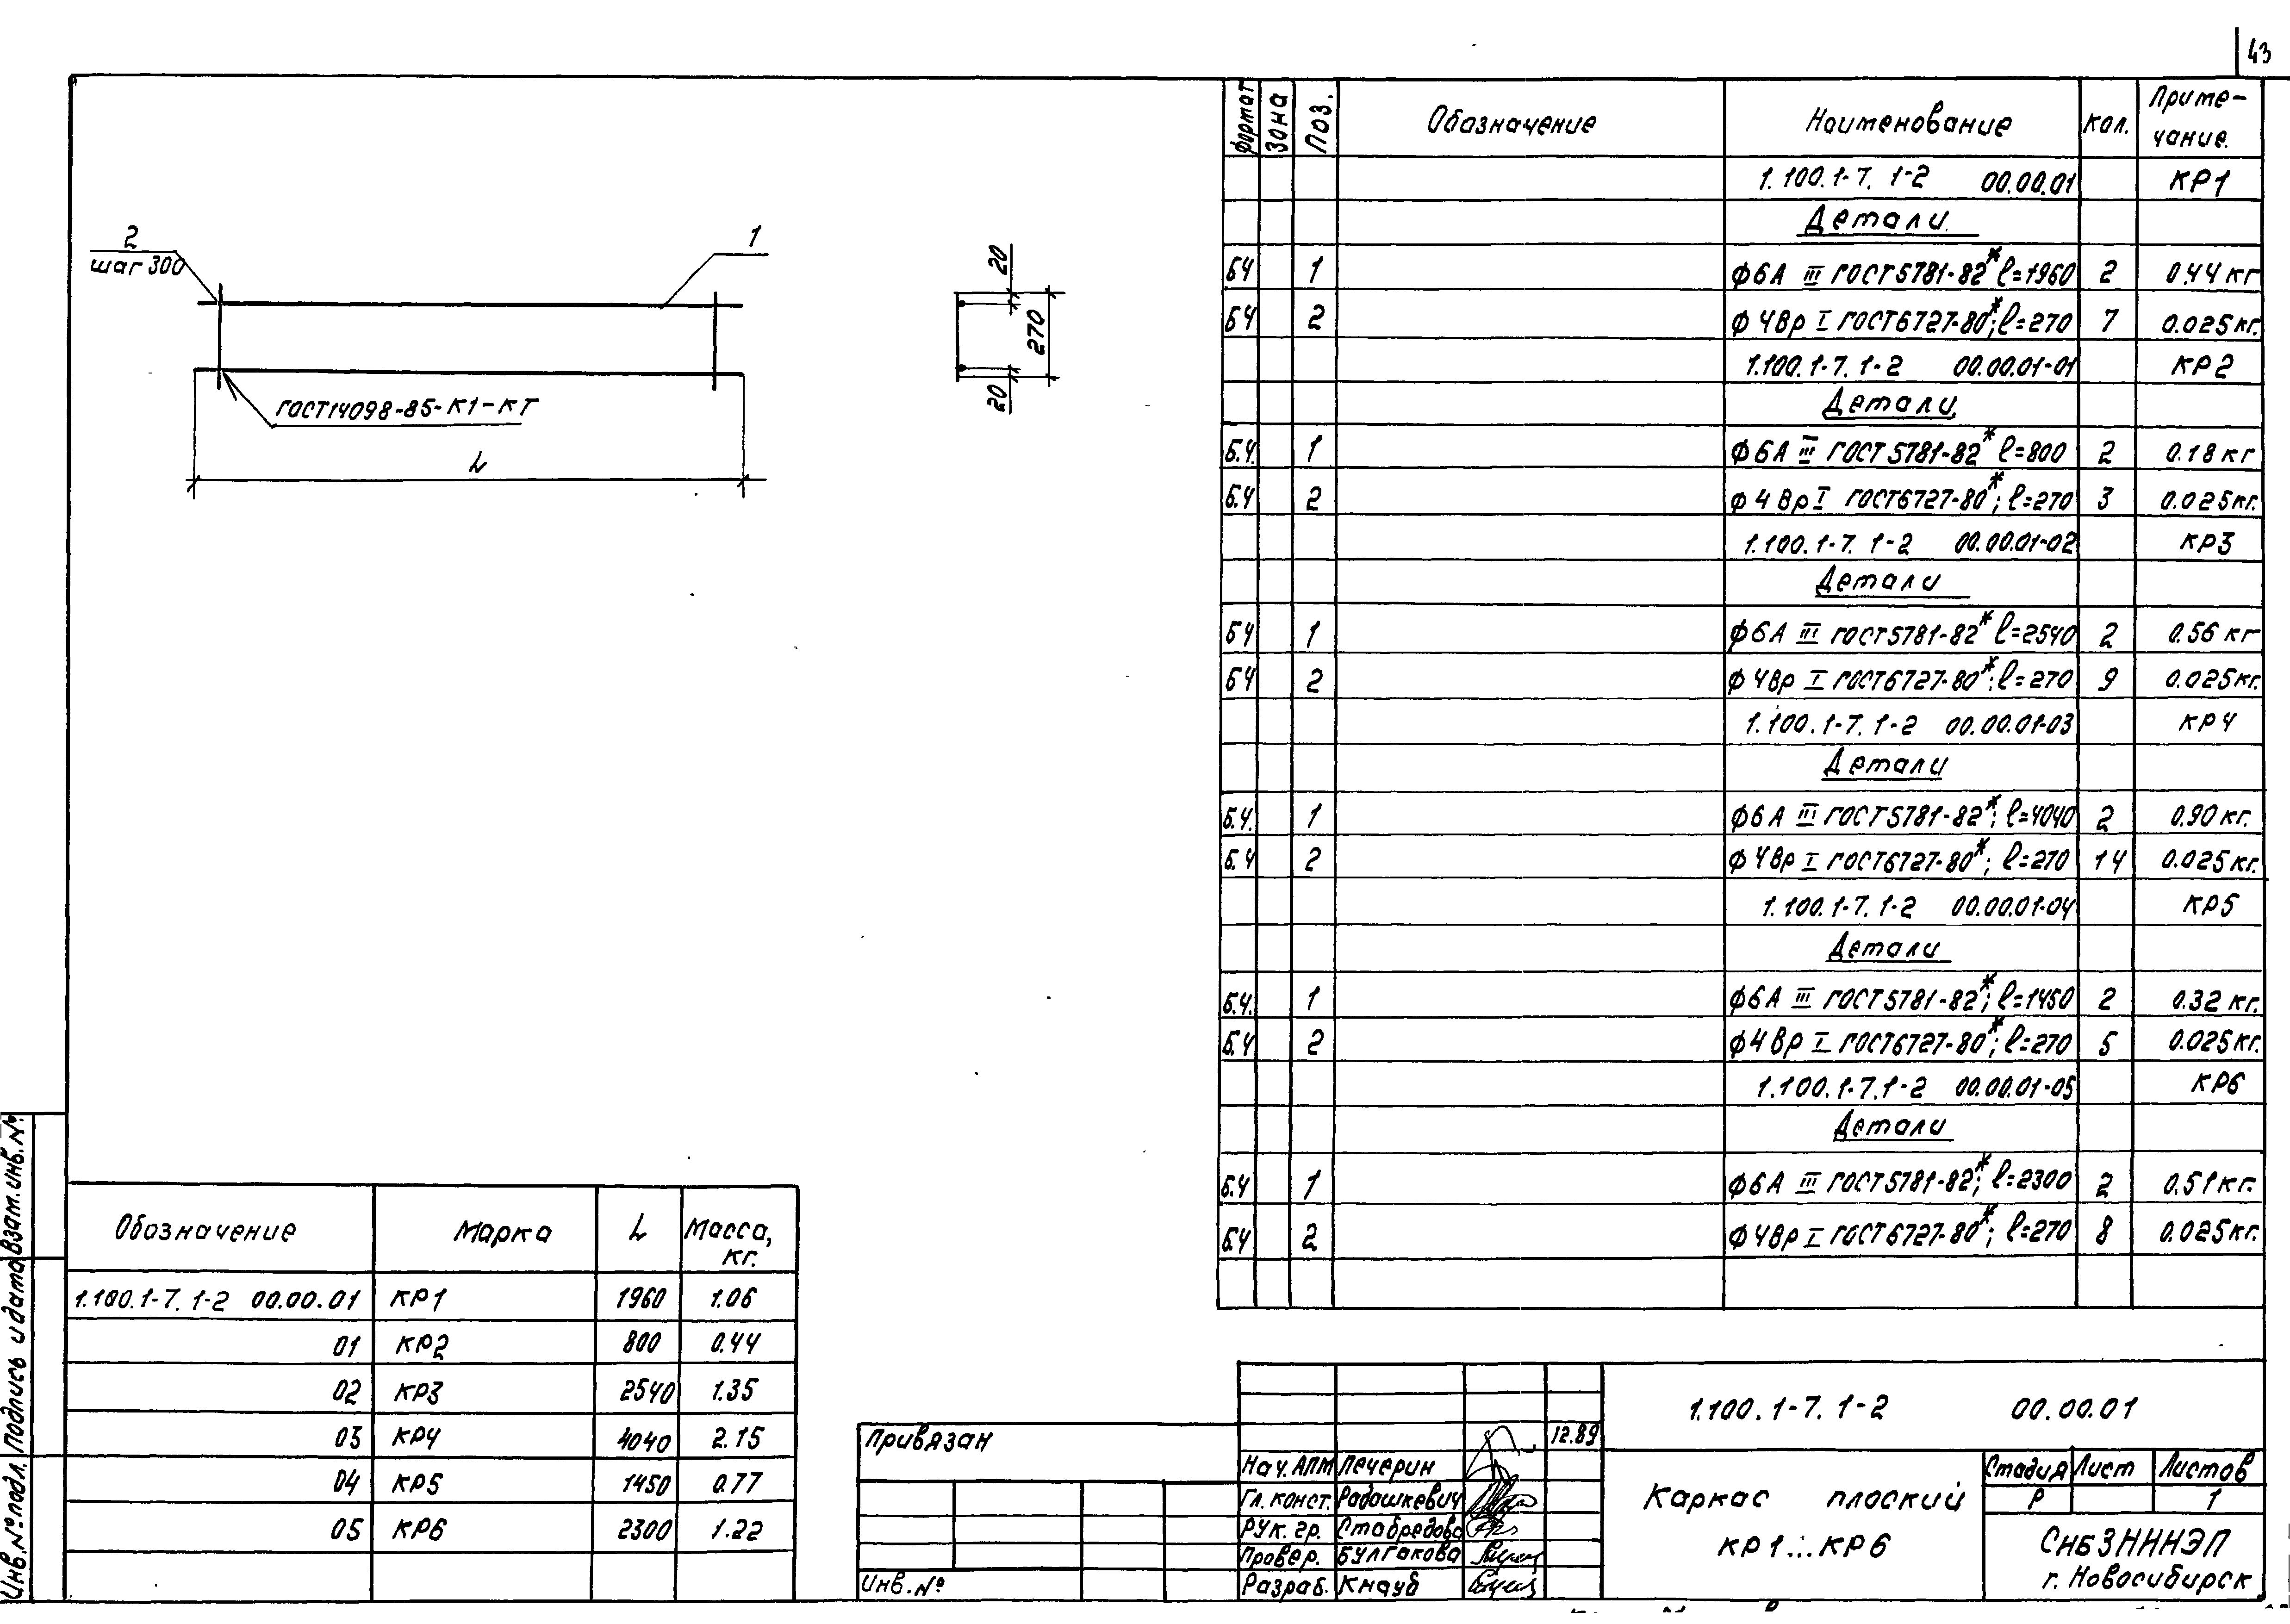 43
2
шаг 300
1
ГОСТ14098-85-К1-КТ
L
20
270
20
Формат Зона Поз. Обозначение Наименование Кол. Приме-
чание.
1.100.1-7. 1-2 00.00.01 КР1
Детали.
БЧ 1 ф6А III ГОСТ5781-82* ℓ=1960 2 0.44 кг
БЧ 2 ф 4Вр I ГОСТ6727-80*; ℓ=270 7 0.025 кг.
1.100.1-7. 1-2 00.00.01-01 КР2
Детали
Б.Ч. 1 ф6А III ГОСТ 5781-82* ℓ=800 2 0.18 кг
Б.Ч 2 ф 4 Вр I ГОСТ6727-80*; ℓ=270 3 0.025кг.
1.100.1-7. 1-2 00.00.01-02 КР3
Детали
БЧ 1 ф6А III ГОСТ5781-82* ℓ=2540 2 0.56 кг
БЧ 2 ф 4Вр I ГОСТ6727-80*; ℓ=270 9 0.025кг.
1.100.1-7. 1-2 00.00.01-03 КР4
Детали
Б.Ч. 1 ф6А III ГОСТ5781-82*; ℓ=4040 2 0.90 кг.
Б.Ч 2 ф 4Вр I ГОСТ6727-80*; ℓ=270 14 0.025 кг.
1.100.1-7. 1-2 00.00.01-04 КР5
Детали
Б.Ч. 1 ф6А III ГОСТ5781-82*; ℓ=1450 2 0.32 кг.
Б.Ч 2 ф4 Вр I ГОСТ6727-80*; ℓ=270 5 0.025кг.
1.100.1-7.1-2 00.00.01-05 КР6
Детали
Б.Ч 1 ф6А III ГОСТ5781-82*; ℓ=2300 2 0.51 кг.
Б.Ч 2 ф 4Вр I ГОСТ6727-80*; ℓ=270 8 0.025кг.
Обозначение Марка L Масса,
кг.
1.100.1-7. 1-2 00.00.01 КР1 1960 1.06
01 КР2 800 0.44
02 КР3 2540 1.35
03 КР4 4040 2.15
04 КР5 1450 0.77
05 КР6 2300 1.22
Взам.инв.№
Подпись и дата
Инв.№подл.
Привязан
Инв.№
12.89
Нач.АПМ Печерин
Гл.конст. Радашкевич
Рук. гр. Стабредова
Провер. Булгакова
Разраб. Кнауб
1.100.1-7. 1-2 00.00.01
Каркас плоский
КР1...КР6
Стадия Лист Листов
Р 1
СибЗНИИЭП
г. Новосибирск